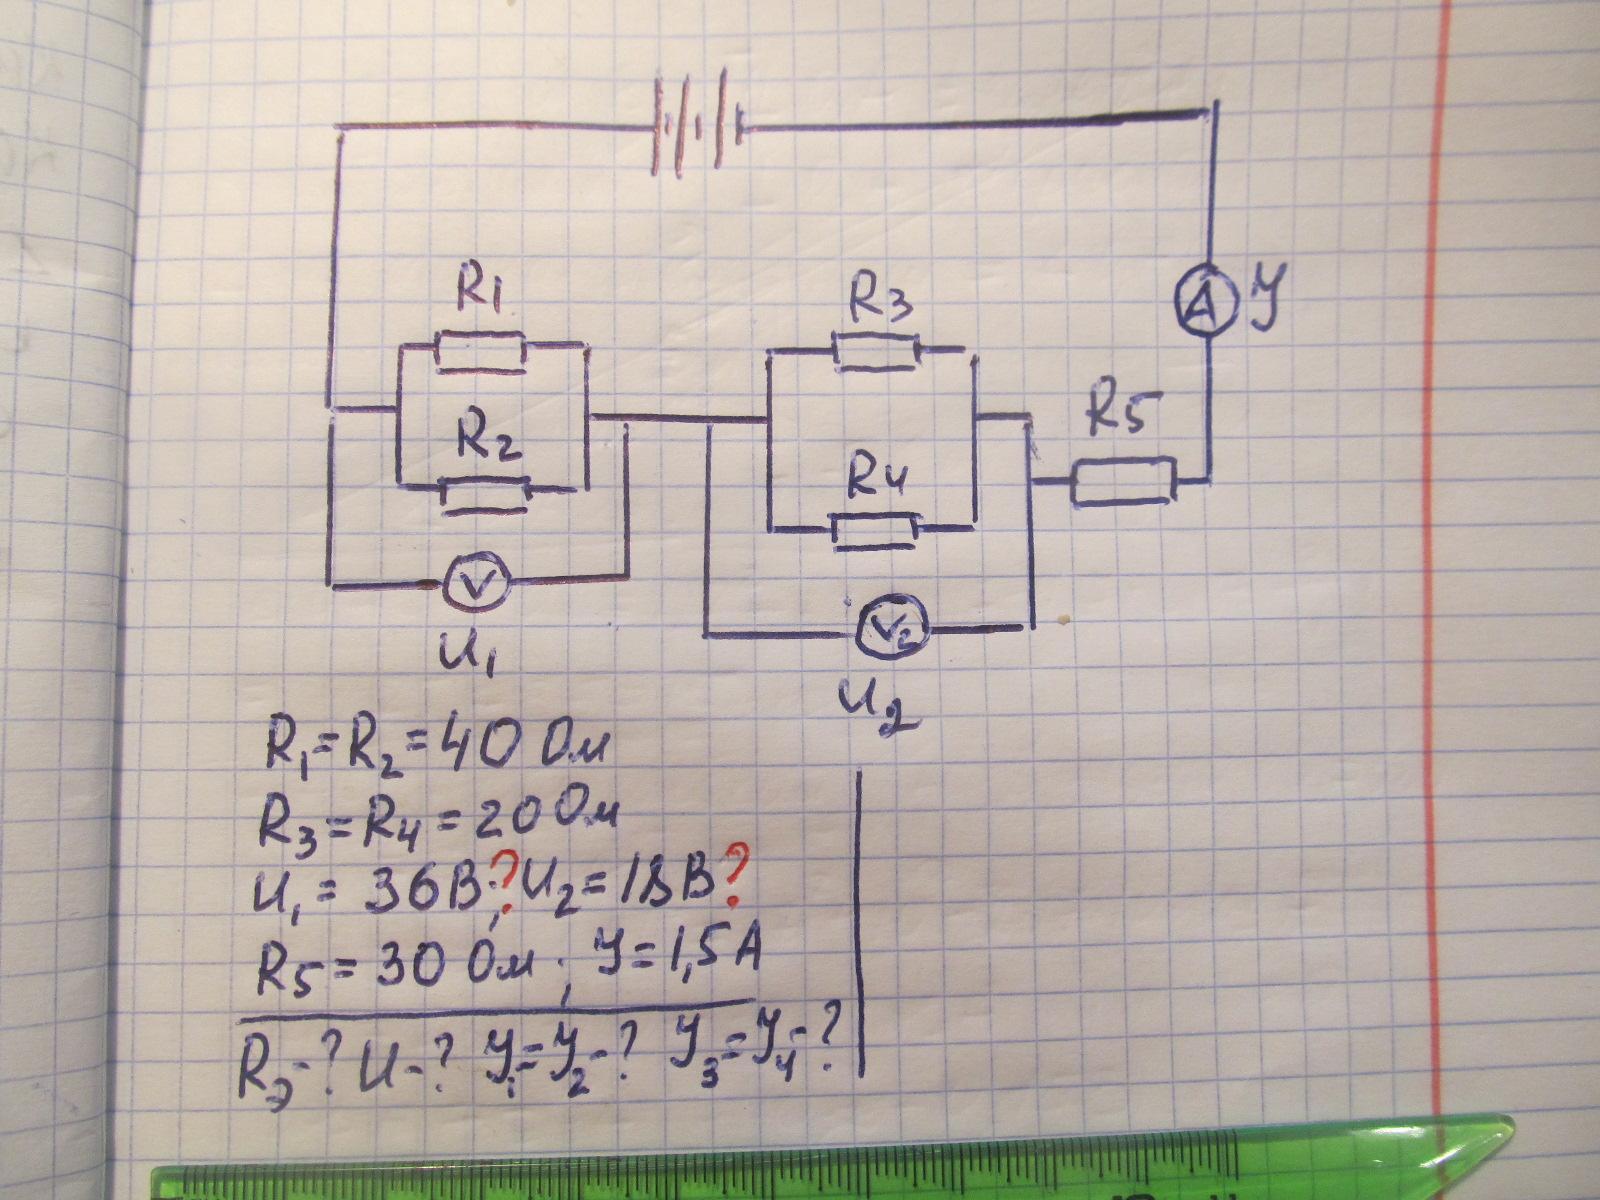 R1
R3
A У
R5
R2
R4
V
V2
U1
U2
R1=R2=40 Ом
R3=R4=20 Ом
U1=36В?; U2=18В?
R5=30 Ом; У=1,5А
RЭ-? U-? У1=У2-? У3=У4-?